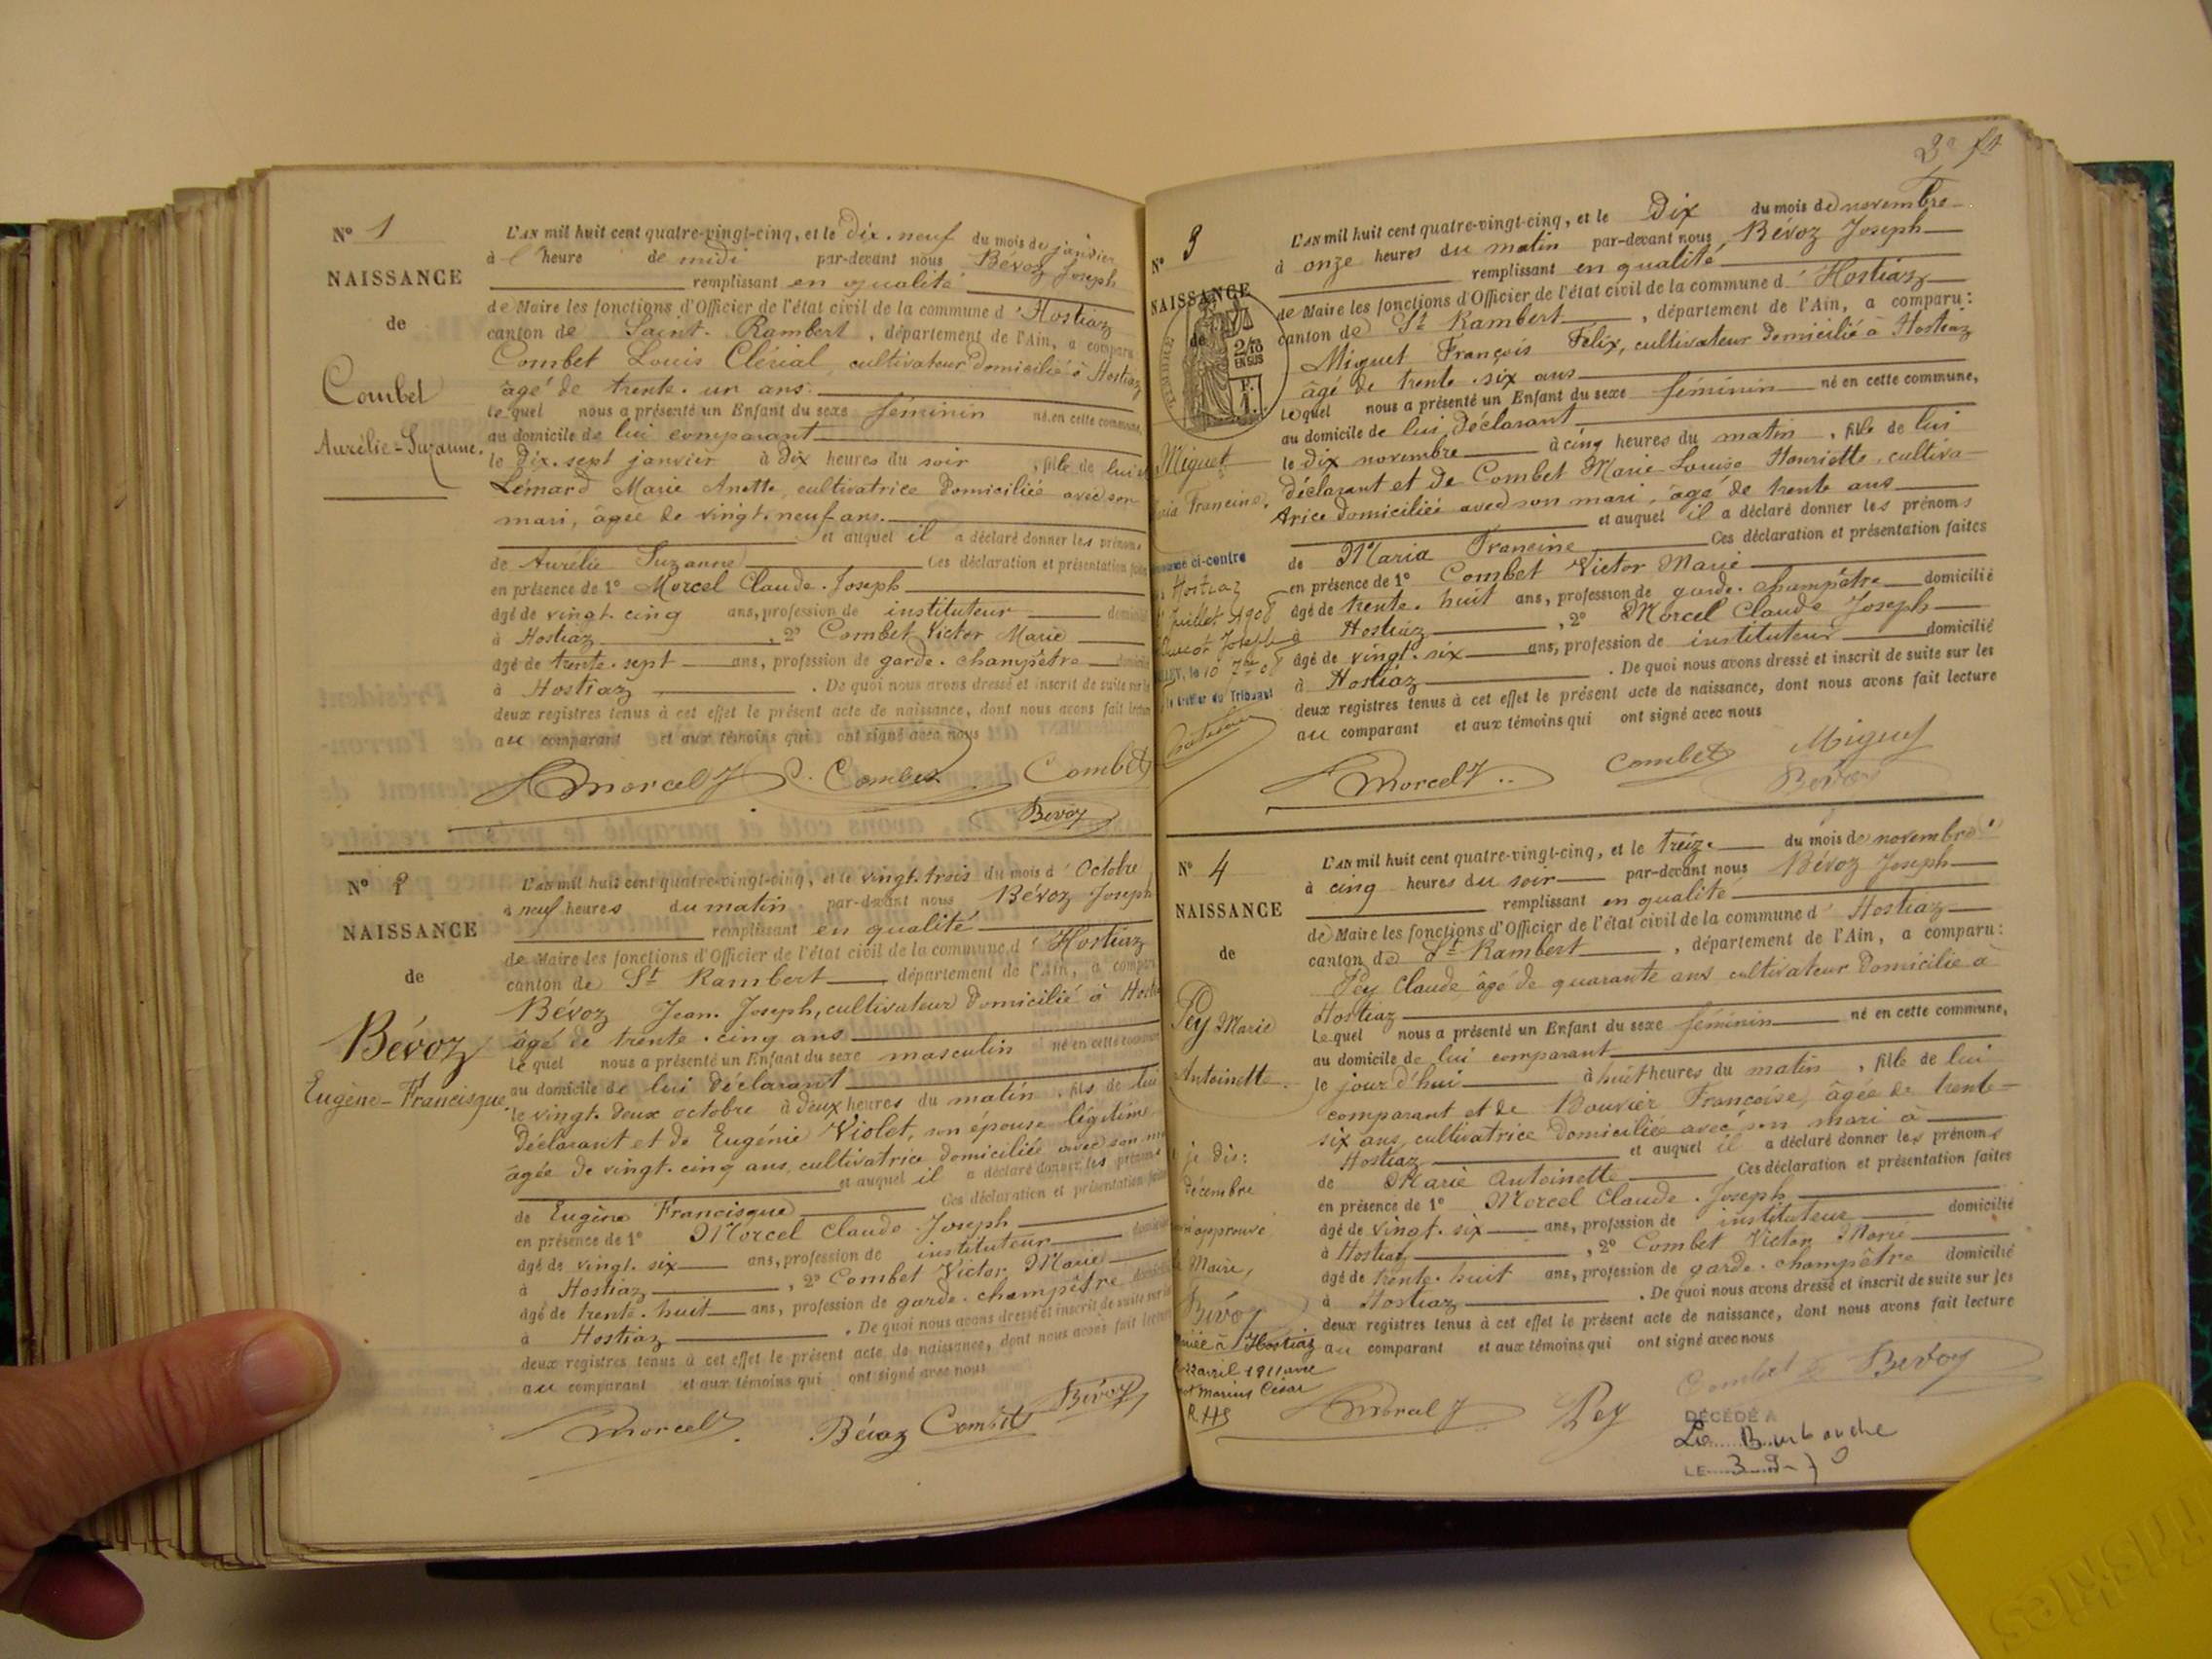 Nº 1
NAISSANCE
de
Combet
Aurélie-Suzanne.
L'AN mil huit cent quatre-vingt-cinq, et le dix-neuf du mois de janvier
à l' heure de midi par-devant nous Bévoz Joseph
remplissant en qualité
de Maire les fonctions d'Officier de l'état civil de la commune d' Hostiaz
canton de Saint-Rambert, département de l'Ain, a comparu
Combet Louis Clérial, cultivateur domicilié à Hostiaz
âgé de trente-un ans.
lequel nous a présenté un Enfant du sexe féminin né en cette commune,
au domicile de lui comparant
le dix-sept janvier à dix heures du soir, fille de lui et
Lémard Marie Anette, cultivatrice domiciliée avec son
mari, âgée de vingt-neuf ans.
et auquel il a déclaré donner les prénoms
de Aurélie Suzanne Ces déclaration et présentation faites
en présence de 1º Morcel Claude-Joseph
âgé de vingt-cinq ans, profession de instituteur domicilié
à Hostiaz, 2º Combet Victor Marie
âgé de trente-sept ans, profession de garde-champêtre domicilié
à Hostiaz. De quoi nous avons dressé et inscrit de suite sur les
deux registres tenus à cet effet le présent acte de naissance, dont nous avons fait lecture
au comparant et aux témoins qui ont signé avec nous
Morcel J C. Combet Combet
Bévoz
Nº 2
NAISSANCE
de
Bévoz
Eugène-Francisque.
L'AN mil huit cent quatre-vingt-cinq, et le vingt-trois du mois d' Octobre
à neuf heures du matin par-devant nous Bévoz Joseph
remplissant en qualité
de Maire les fonctions d'Officier de l'état civil de la commune d' Hostiaz
canton de St Rambert département de l'Ain, a comparu
Bévoz Jean-Joseph, cultivateur domicilié à Hostiaz
âgé de trente-cinq ans
lequel nous a présenté un Enfant du sexe masculin né en cette commune
au domicile de lui déclarant
le vingt-deux octobre à deux heures du matin, fils de lui
déclarant et de Eugénie Violet, son épouse légitime
âgée de vingt-cinq ans, cultivatrice domiciliée avec son mari
et auquel il a déclaré donner les prénoms
de Eugène Francisque Ces déclaration et présentation faites
en présence de 1º Morcel Claude Joseph
âgé de vingt-six ans, profession de instituteur domicilié
à Hostiaz, 2º Combet Victor Marie
âgé de trente-huit ans, profession de garde-champêtre domicilié
à Hostiaz. De quoi nous avons dressé et inscrit de suite sur les
deux registres tenus à cet effet le présent acte de naissance, dont nous avons fait lecture
au comparant et aux témoins qui ont signé avec nous
Morcel J. Bévoz Combet Bévoz
2e ft
Nº 3
NAISSANCE
de
TIMBRE
2/10
EN SUS
Miguet
Maria Francine.
ci-contre
à Hostiaz
Juillet 1908
Joseph
le 10 7bre 08
le Greffier du Tribunal
L'AN mil huit cent quatre-vingt-cinq, et le dix du mois de novembre
à onze heures du matin par-devant nous Bévoz Joseph
remplissant en qualité
de Maire les fonctions d'Officier de l'état civil de la commune d' Hostiaz
canton de St Rambert, département de l'Ain, a comparu:
Miguet François Felix, cultivateur domicilié à Hostiaz
âgé de trente-six ans
lequel nous a présenté un Enfant du sexe féminin né en cette commune,
au domicile de lui déclarant
le dix novembre à cinq heures du matin, fille de lui
déclarant et de Combet Marie-Louise Henriette, cultiva-
trice domiciliée avec son mari, âgé de trente ans
et auquel il a déclaré donner les prénoms
de Maria Francine Ces déclaration et présentation faites
en présence de 1º Combet Victor Marie
âgé de trente-huit ans, profession de garde-champêtre domicilié
à Hostiaz, 2º Morcel Claude Joseph
âgé de vingt-six ans, profession de instituteur domicilié
à Hostiaz. De quoi nous avons dressé et inscrit de suite sur les
deux registres tenus à cet effet le présent acte de naissance, dont nous avons fait lecture
au comparant et aux témoins qui ont signé avec nous
Morcel J Combet Miguet
Bévoz
Nº 4
NAISSANCE
de
Pey Marie
Antoinette.
je dis:
décembre
approuvé
Le Maire,
Bévoz
Mariée à Hostiaz
22 avril 1911 avec
Marius César
L'AN mil huit cent quatre-vingt-cinq, et le treize du mois de novembre
à cinq heures du soir par-devant nous Bévoz Joseph
remplissant en qualité
de Maire les fonctions d'Officier de l'état civil de la commune d' Hostiaz
canton de St Rambert, département de l'Ain, a comparu:
Pey Claude, âgé de quarante ans cultivateur domicilié à
Hostiaz
Lequel nous a présenté un Enfant du sexe féminin né en cette commune,
au domicile de lui comparant
le jour d'hui à huit heures du matin, fille de lui
comparant et de Bouvier Françoise, âgée de trente-
six ans, cultivatrice domiciliée avec son mari à
Hostiaz et auquel il a déclaré donner les prénoms
de Marie Antoinette Ces déclaration et présentation faites
en présence de 1º Morcel Claude-Joseph
âgé de vingt-six ans, profession de instituteur domicilié
à Hostiaz, 2º Combet Victor Marie
âgé de trente-huit ans, profession de garde-champêtre domicilié
à Hostiaz. De quoi nous avons dressé et inscrit de suite sur les
deux registres tenus à cet effet le présent acte de naissance, dont nous avons fait lecture
au comparant et aux témoins qui ont signé avec nous
Morcel J Pey Combet Bévoz
DÉCÉDÉ A
La Burbanche
LE 3-9-70